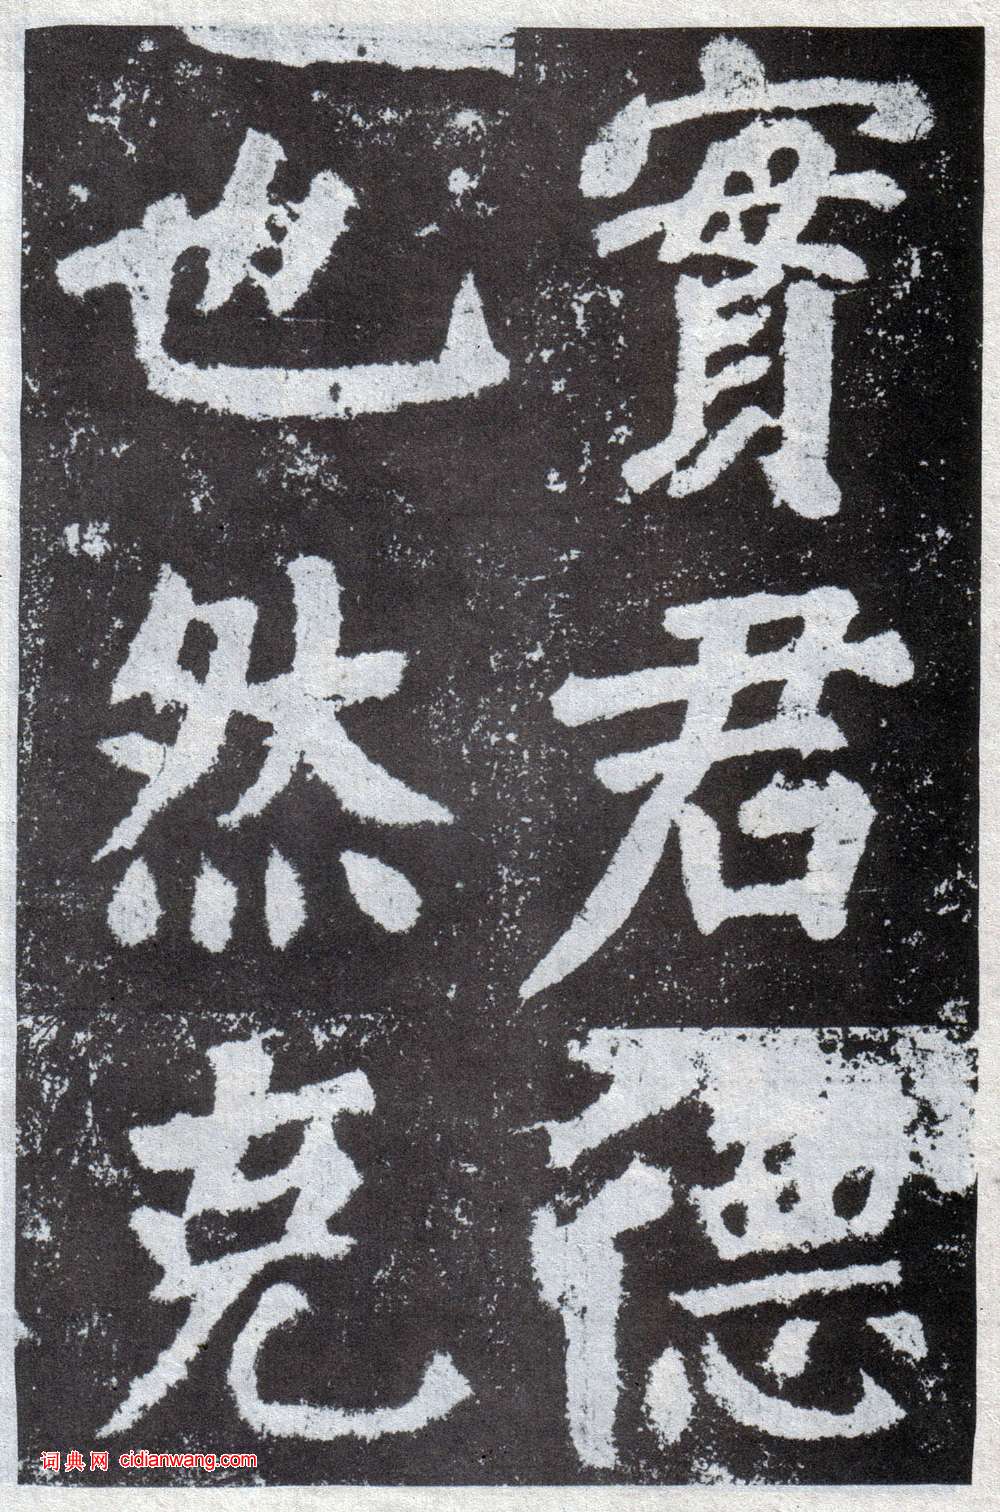 實君德
也然克
词典网 cidianwang.com